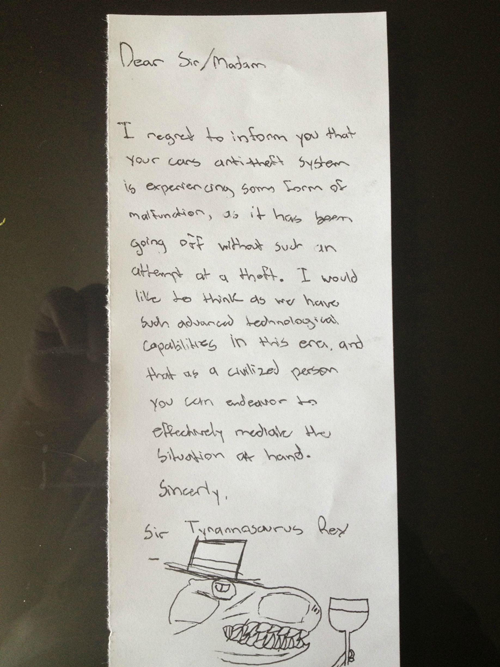 Dear Sir/Madam
I regret to inform you that
your cars antitheft system
is experiencing some form of
malfunction, as it has been
going off without such an
attempt at a theft. I would
like to think as we have
such advanced technological
capabilities in this era, and
that as a civilized person
you can endeavor to
effectively mediate the
situation at hand.
Sincerly,
Sir Tyrannasaurus Rex